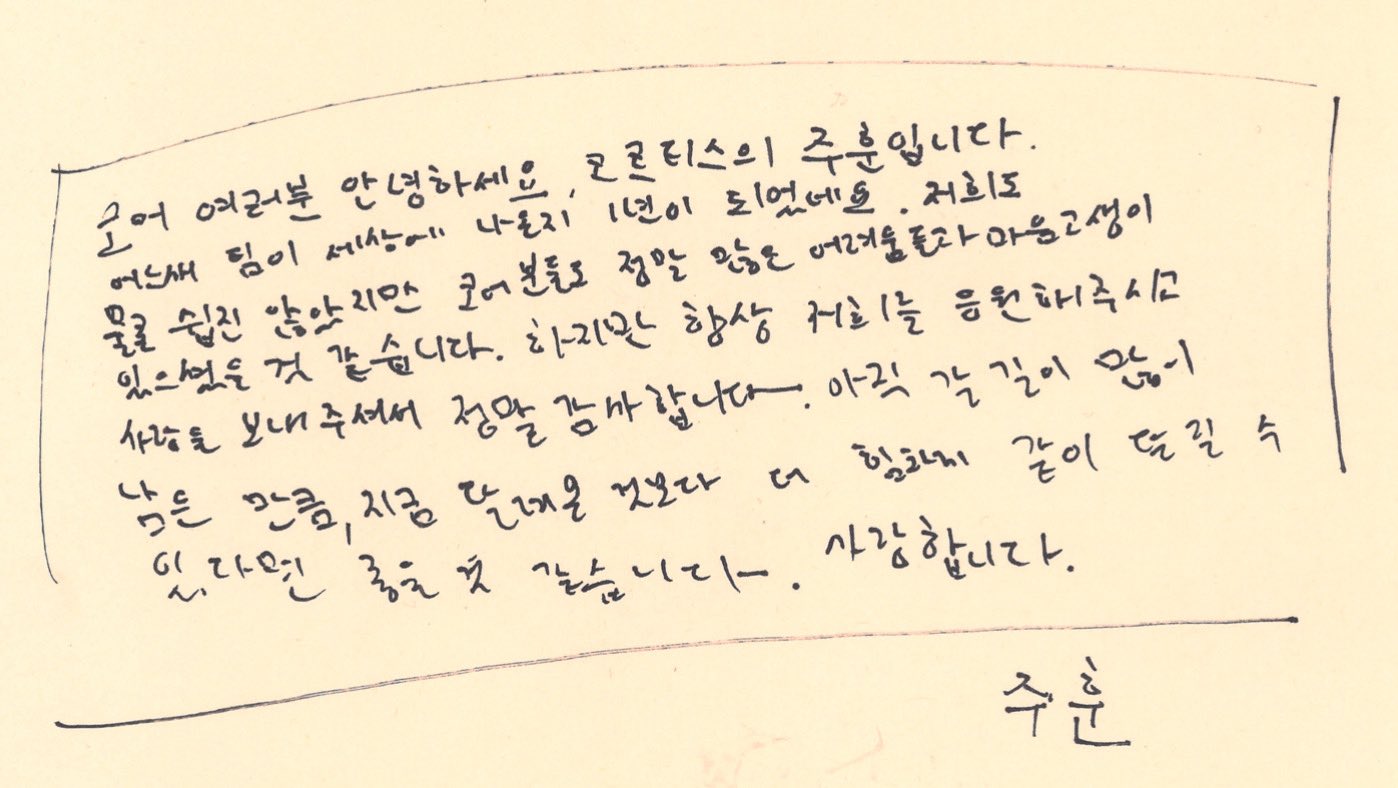 코어 여러분 안녕하세요, 코르티스의 주훈입니다.
어느새 팀이 세상에 나온지 1년이 되었네요. 저희도
물론 쉽진 않았지만 코어분들도 정말 많은 어려움들과 마음고생이
있으셨을 것 같습니다. 하지만 항상 저희를 응원해주시고
사랑을 보내주셔서 정말 감사합니다. 아직 갈 길이 많이
남은 만큼, 지금 달려온 것보다 더 힘차게 같이 달릴 수
있다면 좋을 것 같습니다. 사랑합니다.
주훈